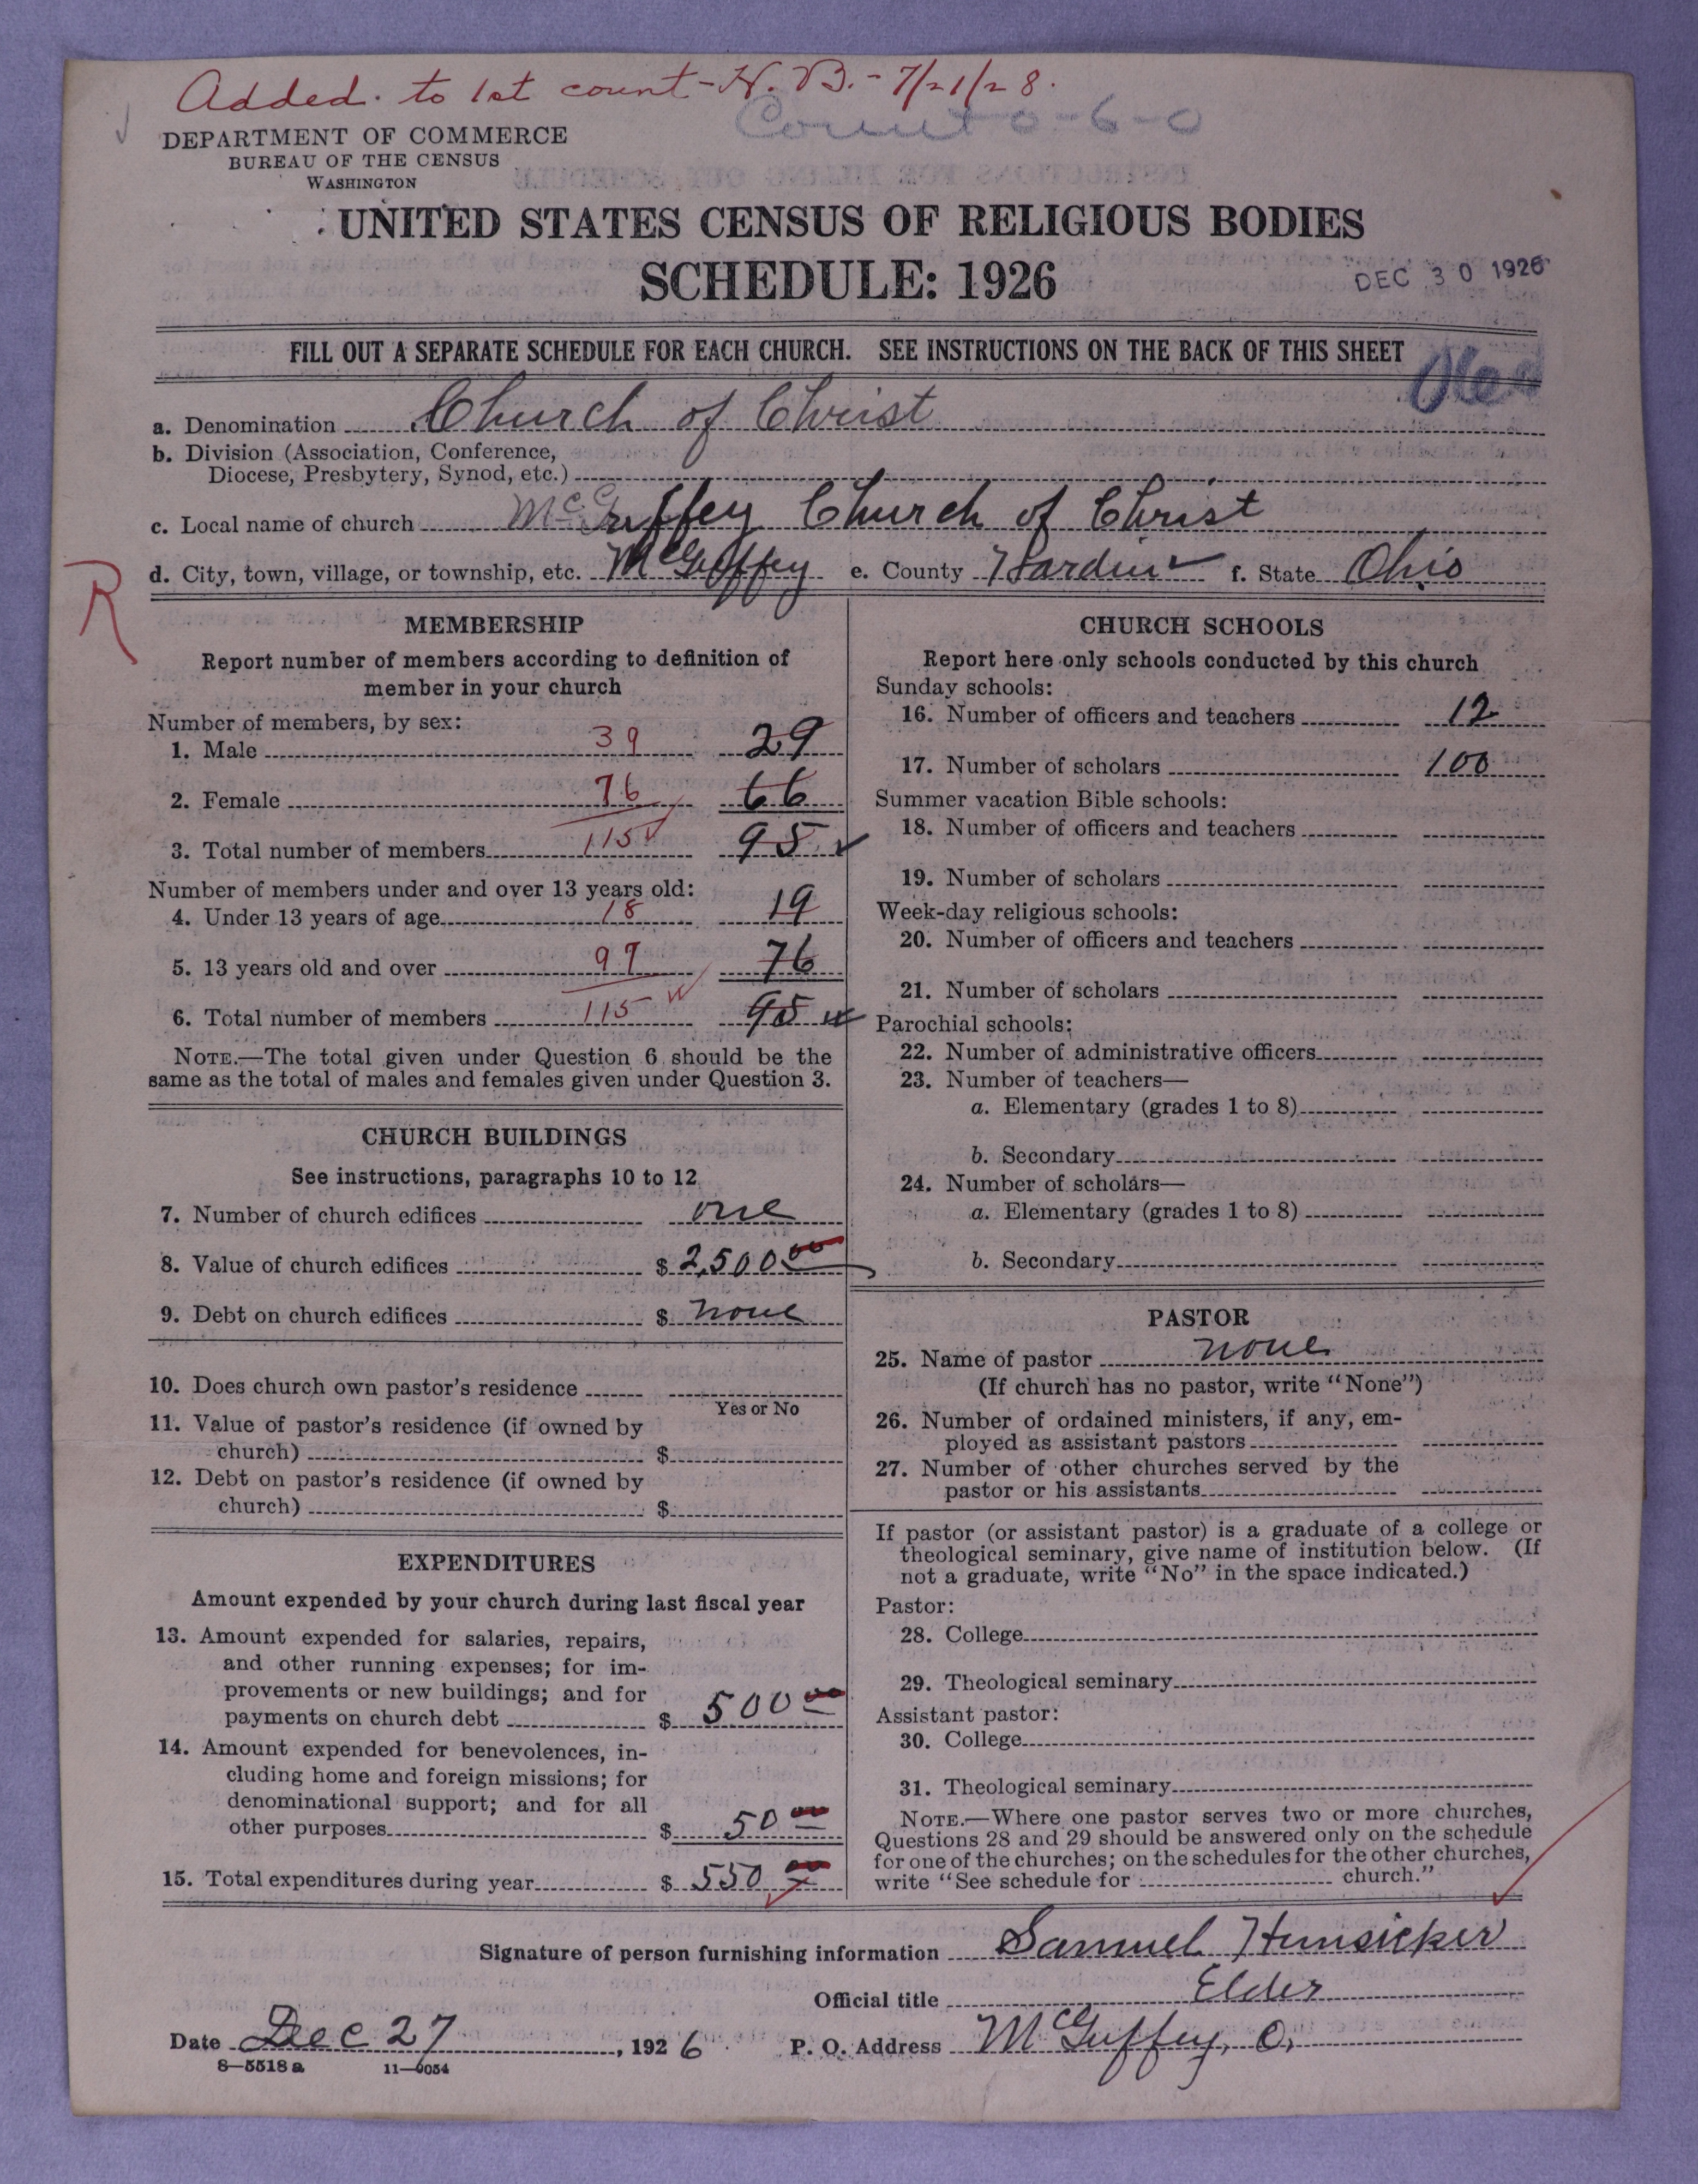 Added to 1st count - H. B. - 7/21/28.
Count 0-6-0
DEPARTMENT OF COMMERCE
BUREAU OF THE CENSUS
WASHINGTON
UNITED STATES CENSUS OF RELIGIOUS BODIES
SCHEDULE: 1926
DEC 30 1926
FILL OUT A SEPARATE SCHEDULE FOR EACH CHURCH. SEE INSTRUCTIONS ON THE BACK OF THIS SHEET
a. Denomination Church of Christ
b. Division (Association, Conference,
Diocese, Presbytery, Synod, etc.)
c. Local name of church McGuffey Church of Christ
d. City, town, village, or township, etc. McGuffey e. County Hardin f. State Ohio
R
MEMBERSHIP
Report number of members according to definition of
member in your church
Number of members, by sex:
1. Male 39 29
2. Female 76 66
3. Total number of members 115 95
Number of members under and over 13 years old:
4. Under 13 years of age 18 19
5. 13 years old and over 97 76
6. Total number of members 115 95
NOTE.—The total given under Question 6 should be the
same as the total of males and females given under Question 3.
CHURCH BUILDINGS
See instructions, paragraphs 10 to 12
7. Number of church edifices one
8. Value of church edifices $ 2,500 00
9. Debt on church edifices $ none
10. Does church own pastor's residence
Yes or No
11. Value of pastor's residence (if owned by
church) $
12. Debt on pastor's residence (if owned by
church) $
EXPENDITURES
Amount expended by your church during last fiscal year
13. Amount expended for salaries, repairs,
and other running expenses; for im-
provements or new buildings; and for
payments on church debt $ 500 00
14. Amount expended for benevolences, in-
cluding home and foreign missions; for
denominational support; and for all
other purposes $ 50 00
15. Total expenditures during year $ 550 00
CHURCH SCHOOLS
Report here only schools conducted by this church
Sunday schools:
16. Number of officers and teachers 12
17. Number of scholars 100
Summer vacation Bible schools:
18. Number of officers and teachers
19. Number of scholars
Week-day religious schools:
20. Number of officers and teachers
21. Number of scholars
Parochial schools:
22. Number of administrative officers
23. Number of teachers—
a. Elementary (grades 1 to 8)
b. Secondary
24. Number of scholars—
a. Elementary (grades 1 to 8)
b. Secondary
PASTOR
25. Name of pastor none
(If church has no pastor, write "None")
26. Number of ordained ministers, if any, em-
ployed as assistant pastors
27. Number of other churches served by the
pastor or his assistants
If pastor (or assistant pastor) is a graduate of a college or
theological seminary, give name of institution below. (If
not a graduate, write "No" in the space indicated.)
Pastor:
28. College
29. Theological seminary
Assistant pastor:
30. College
31. Theological seminary
NOTE.—Where one pastor serves two or more churches,
Questions 28 and 29 should be answered only on the schedule
for one of the churches; on the schedules for the other churches,
write "See schedule for church."
Signature of person furnishing information Samuel Hunsicker
Official title Elder
Date Dec 27, 1926 P. O. Address McGuffey, O.
8—5518a 11—6054